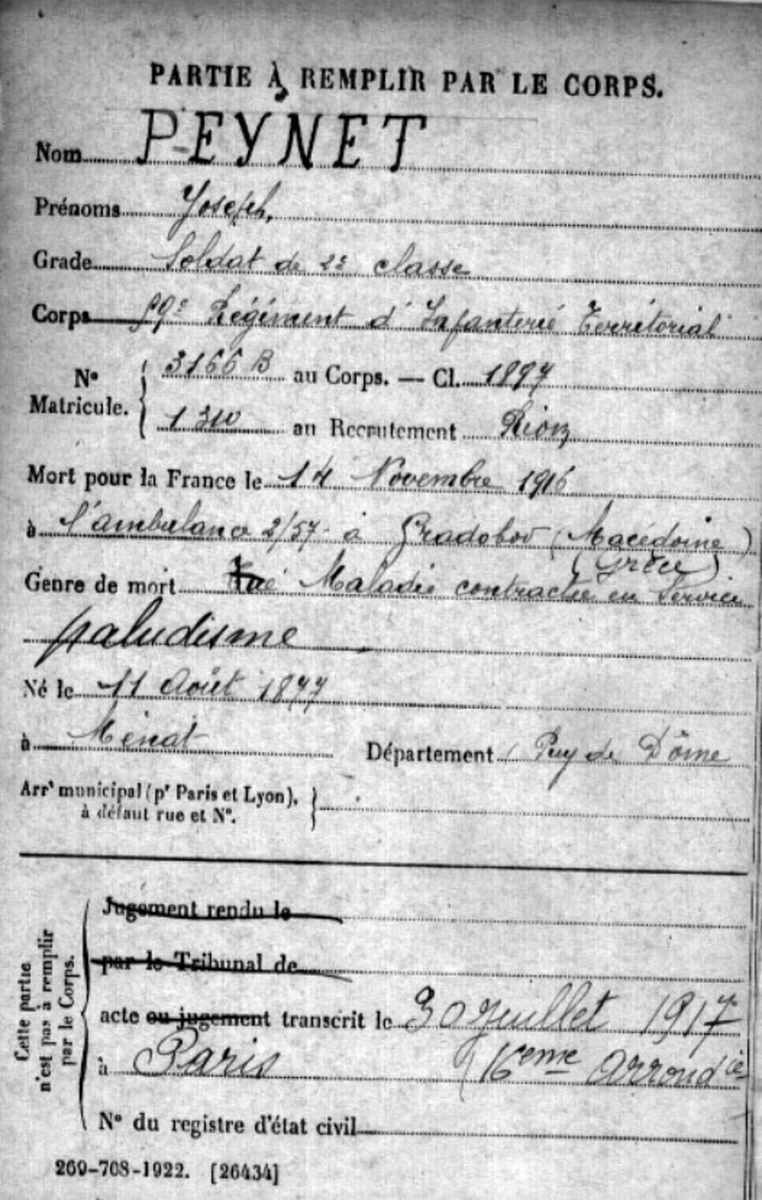 PARTIE À REMPLIR PAR LE CORPS.
Nom PEYNET
Prénoms Joseph,
Grade Soldat de 2e classe
Corps 59e Régiment d'Infanterie Territorial
No Matricule. { 3166 B au Corps. — Cl. 1897
1310 au Recrutement Riom
Mort pour la France le 14 Novembre 1916
à l'ambulance 2/57 à Gradobor (Macédoine)
(Grèce)
Genre de mort Maladie contractée en Service
paludisme
Né le 11 Août 1877
à Menat Département Puy de Dôme
Arrt municipal (pr Paris et Lyon),
à défaut rue et No.
Cette partie
n'est pas à remplir
par le Corps.
Jugement rendu le
par le Tribunal de
acte ou jugement transcrit le 30 Juillet 1917
à Paris (16eme Arrondie
No du registre d'état civil
269-708-1922. [26434]